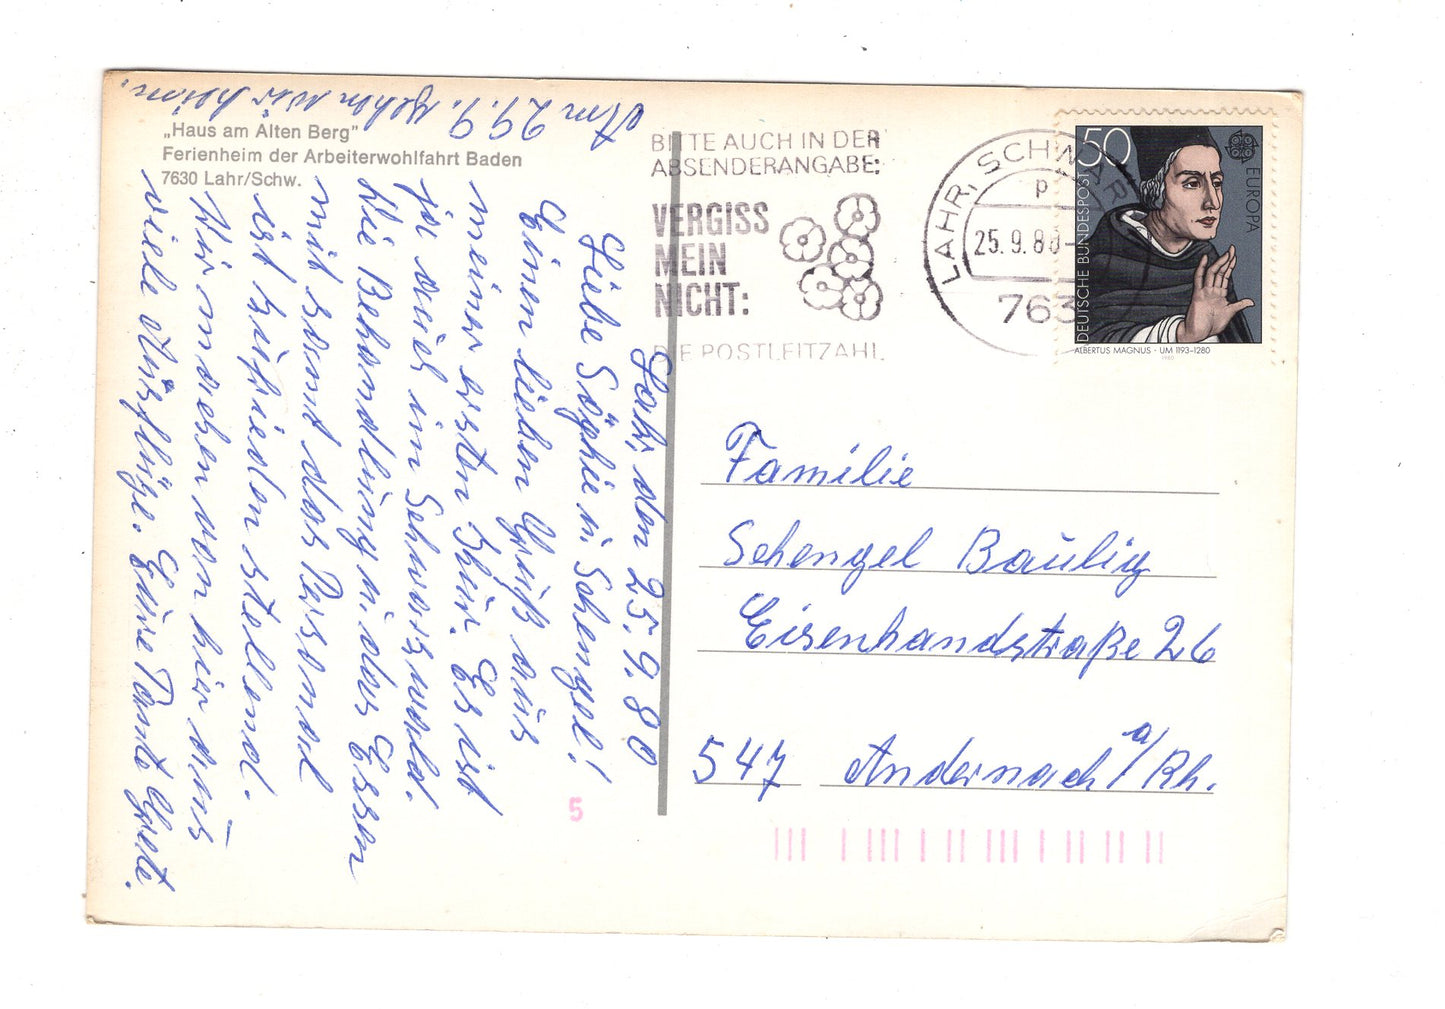 „Haus am Alten Berg"
Ferienheim der Arbeiterwohlfahrt Baden
7630 Lahr/Schw.
Lahr, den 25.9.80
Liebe Söphie u Schengel!
Einen lieben Gruß aus
meiner ersten Kür. Es ist
ja auch im Schwarzwald.
Die Behandlung u. das Essen
mit samt das Personal
ist zufrieden stellend.
Wir machen von hier aus
viele Ausflüge. Eüre Tante Grete.
Am 29.9. gehen wir heim.
BITTE AUCH IN DER
ABSENDERANGABE:
VERGISS
MEIN
NICHT:
DIE POSTLEITZAHL
LAHR, SCHWAR
p
25.9.80
763
50
DEUTSCHE BUNDESPOST
EUROPA
ALBERTUS MAGNUS · UM 1193–1280
1980
Familie
Schengel Baulig
Eisenhandstraße 26
547 Andernach a/Rh.
5